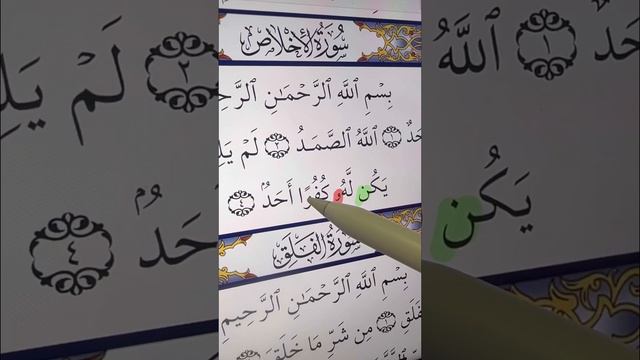 سُورَةُ الإِخْلَاصِ
بِسْمِ ٱللَّهِ ٱلرَّحْمَـٰنِ ٱلرَّحِ
حَدٌ ١ ٱللَّهُ ٱلصَّمَدُ ٢ لَمْ يَلِ
يَكُن لَّهُۥ كُفُوًا أَحَدٌۢ ٤
سُورَةُ الفَلَقِ
بِسْمِ ٱللَّهِ ٱلرَّحْمَـٰنِ ٱلرَّحِيمِ
فَلَقِ ١ مِن شَرِّ مَا خَلَقَ